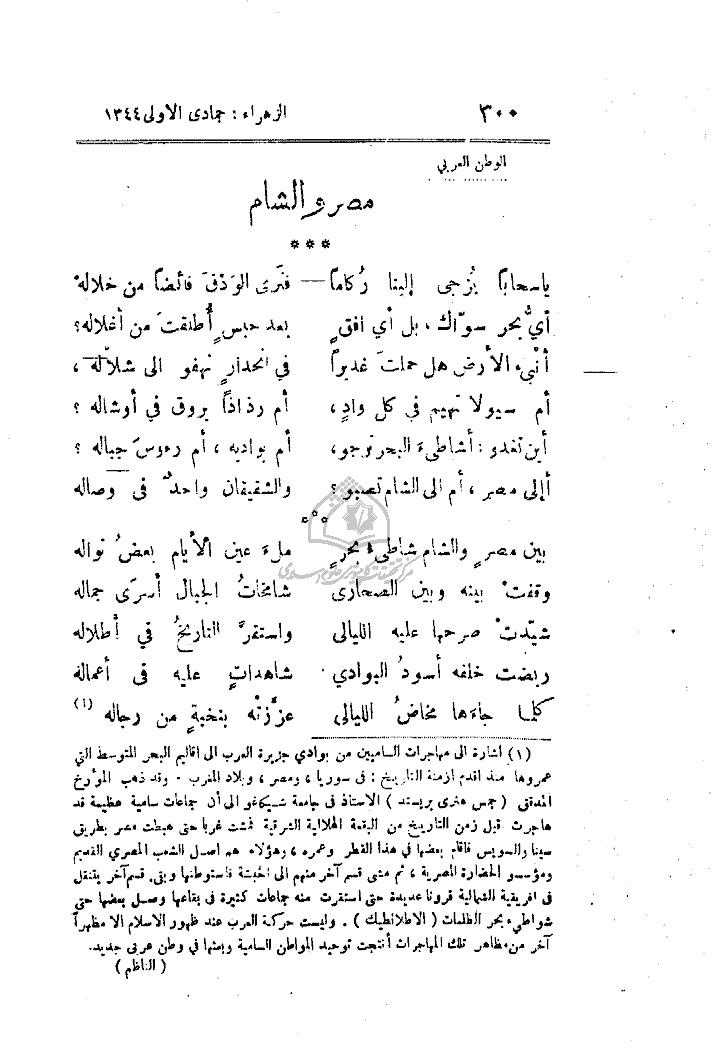 ٣٠٠ الزهراء : جمادى الاولى ١٣٤٤
الوطن العربي
مصر والشام
***
ياسحاباً يُزجى إلينا رُكاماً — فنرى الوَدْقَ فائضاً من خلالهْ
أيُّ بحر سوّاك، بل أي افقٍ بعد حبسٍ أُطلقتَ من أغلاله؟
أنبيء الأرض هل حملتَ غديراً في انحدارٍ نهفو الى شلّاله،
أم سيولا تهيم في كل وادٍ، أم رذاذاً يروق في أوشاله ؟
أين تغدو : أشاطيءَ البحر ترجو، أم بواديه ، أم رءوسَ جباله ؟
أإلى مصر ، أم الى الشام تصبو؟ والشقيقان واحدٌ فى وصاله
***
بين مصرٍ والشام شاطيءُ بحرٍ ملءَ عين الأيام بعضُ نواله
وقفتْ بينه وبين الصحارى شامخاتُ الجبال أسرَى جماله
شيّدتْ صرحها عليه الليالى واستقرَّ التاريخُ في أطلاله
ربضت خلفه أسودُ البوادي شاهداتٍ عليه فى أعماله
كلما جاءَها مخاضُ الليالى عزّزتْه بنخبةٍ من رجاله (١)
(١) اشارة الى مهاجرات الساميين من بوادي جزيرة العرب الى اقاليم البحر المتوسط التي
عمروها منذ اقدم ازمنة التاريخ : فى سوريا ، ومصر ، وبلاد المغرب . وقد ذهب المؤرخ
المدقق ( جمس هنرى بريستد ) الاستاذ فى جامعة شيكاغو الى أن جماعات سامية عظيمة قد
هاجرت قبل زمن التاريخ من البقعة الهلالية الشرقية فمشت غربا حتى هبطت مصر بطريق
سينا والسويس فاقام بعضها في هذا القطر وعمره ، وهؤلاء هم اصل الشعب المصري القديم
ومؤسسو الحضارة المصرية ، ثم مشى قسم آخر منهم الى الحبشة فاستوطنها وبقى قسم آخر يتنقل
فى افريقية الشمالية قرونا عديدة حتى استقرت منه جماعات كثيرة فى بقاعها وصل بعضها حتى
شواطيء بحر الظلمات ( الاطلانطيك ) . وليست حركة العرب عند ظهور الاسلام الا مظهراً
آخر من مظاهر تلك المهاجرات أنتجت توحيد المواطن السامية وبعثها في وطن عربي جديد.
( الناظم )